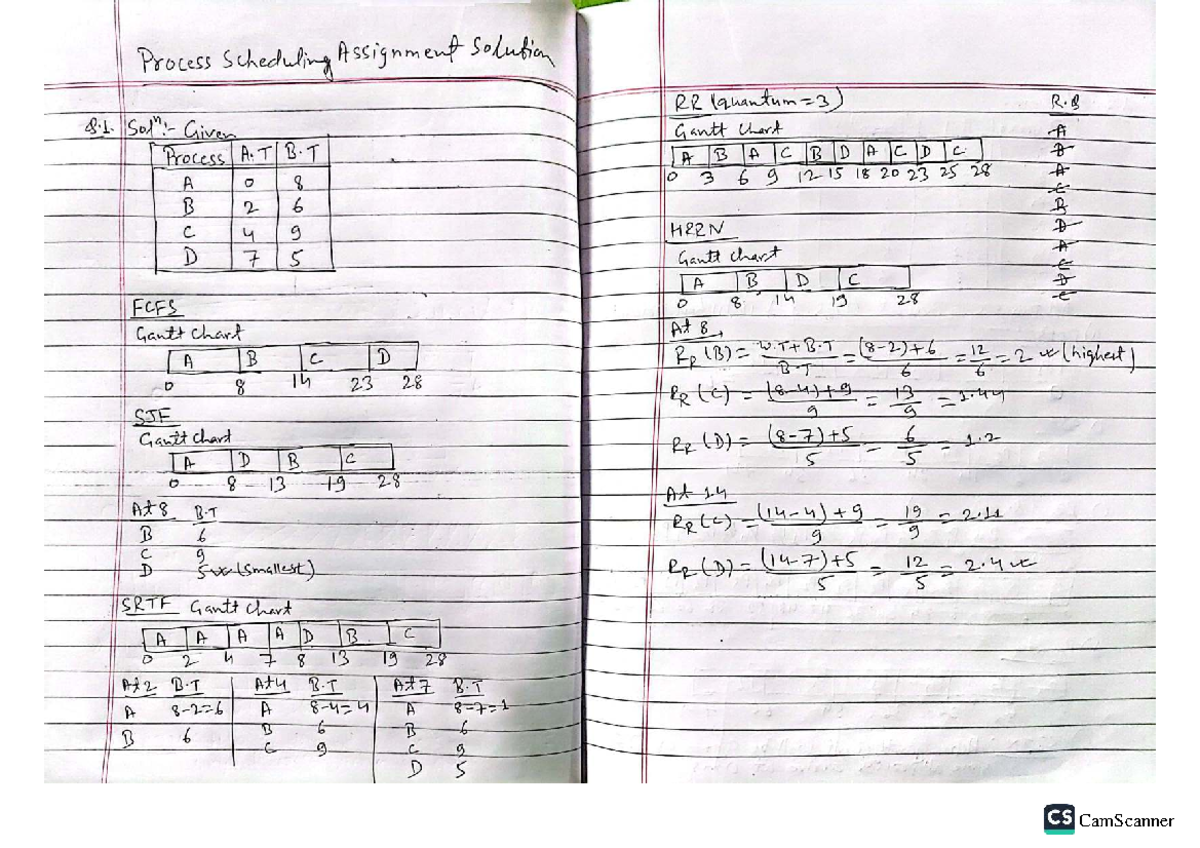 Process Scheduling Assignment Solution
Q.1. Solⁿ:- Given
Process A.T B.T
A 0 8
B 2 6
C 4 9
D 7 5
FCFS
Gantt Chart
A B C D
0 8 14 23 28
SJF
Gantt Chart
A D B C
0 8 13 19 28
At 8 B.T
B 6
C 9
D 5 (Smallest)
SRTF Gantt Chart
A A A A D B C
0 2 4 7 8 13 19 28
At 2 B.T At 4 B.T At 7 B.T
A 8-2=6 A 8-4=4 A 8-7=1
B 6 B 6 B 6
C 9 C 9
D 5
RR (quantum=3) R.Q
Gantt Chart A
A B A C B D A C D C B
0 3 6 9 12 15 18 20 23 25 28 A
C
B
HRRN D
Gantt Chart A
C
A B D C D
0 8 14 19 28 C
At 8,
RR (B) = W.T+B.T / B.T = (8-2)+6 / 6 = 12/6 = 2 (highest)
RR (C) = (8-4)+9 / 9 = 13/9 = 1.44
RR (D) = (8-7)+5 / 5 = 6/5 = 1.2
At 14
RR (C) = (14-4)+9 / 9 = 19/9 = 2.11
RR (D) = (14-7)+5 / 5 = 12/5 = 2.4
CS CamScanner